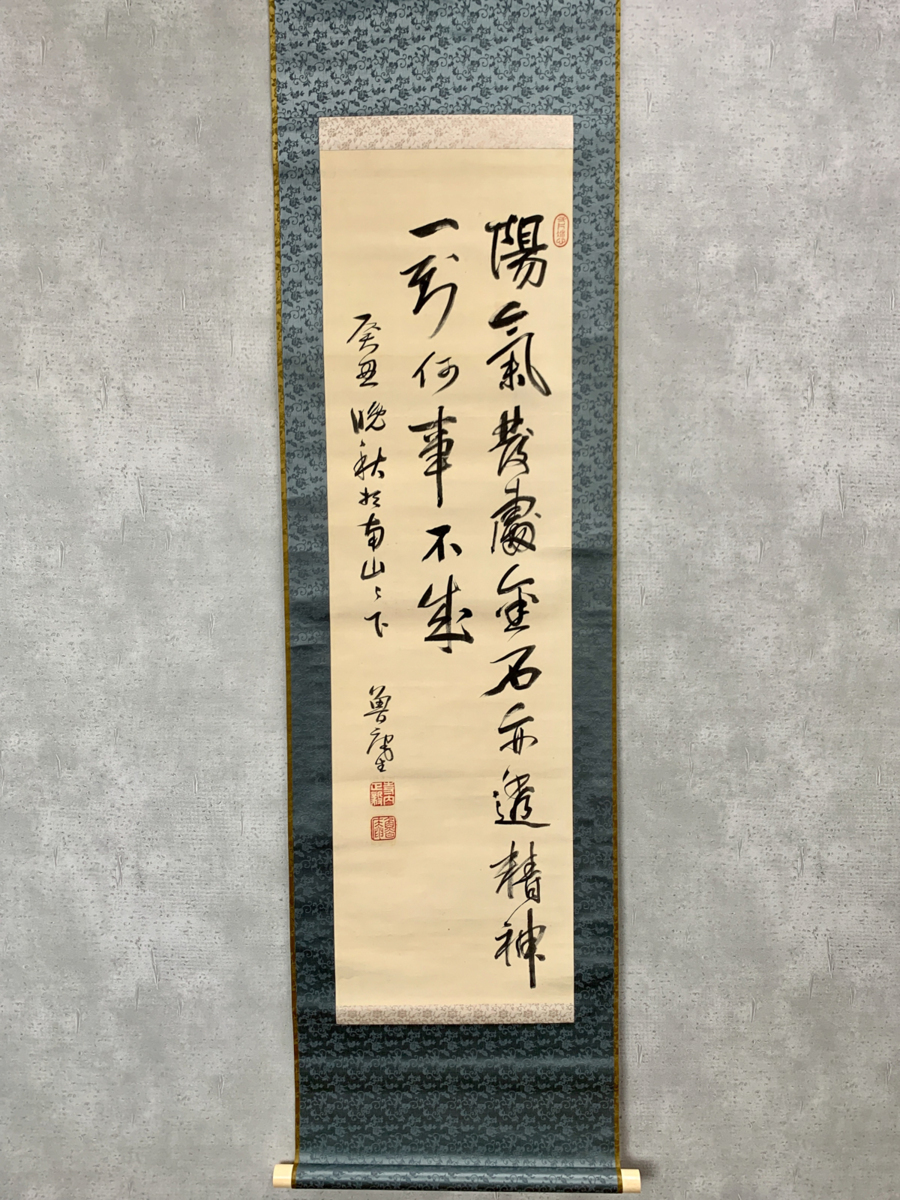 陽氣發處金石亦透精神
一到何事不成
癸丑晩秋於南山之下
魯堂